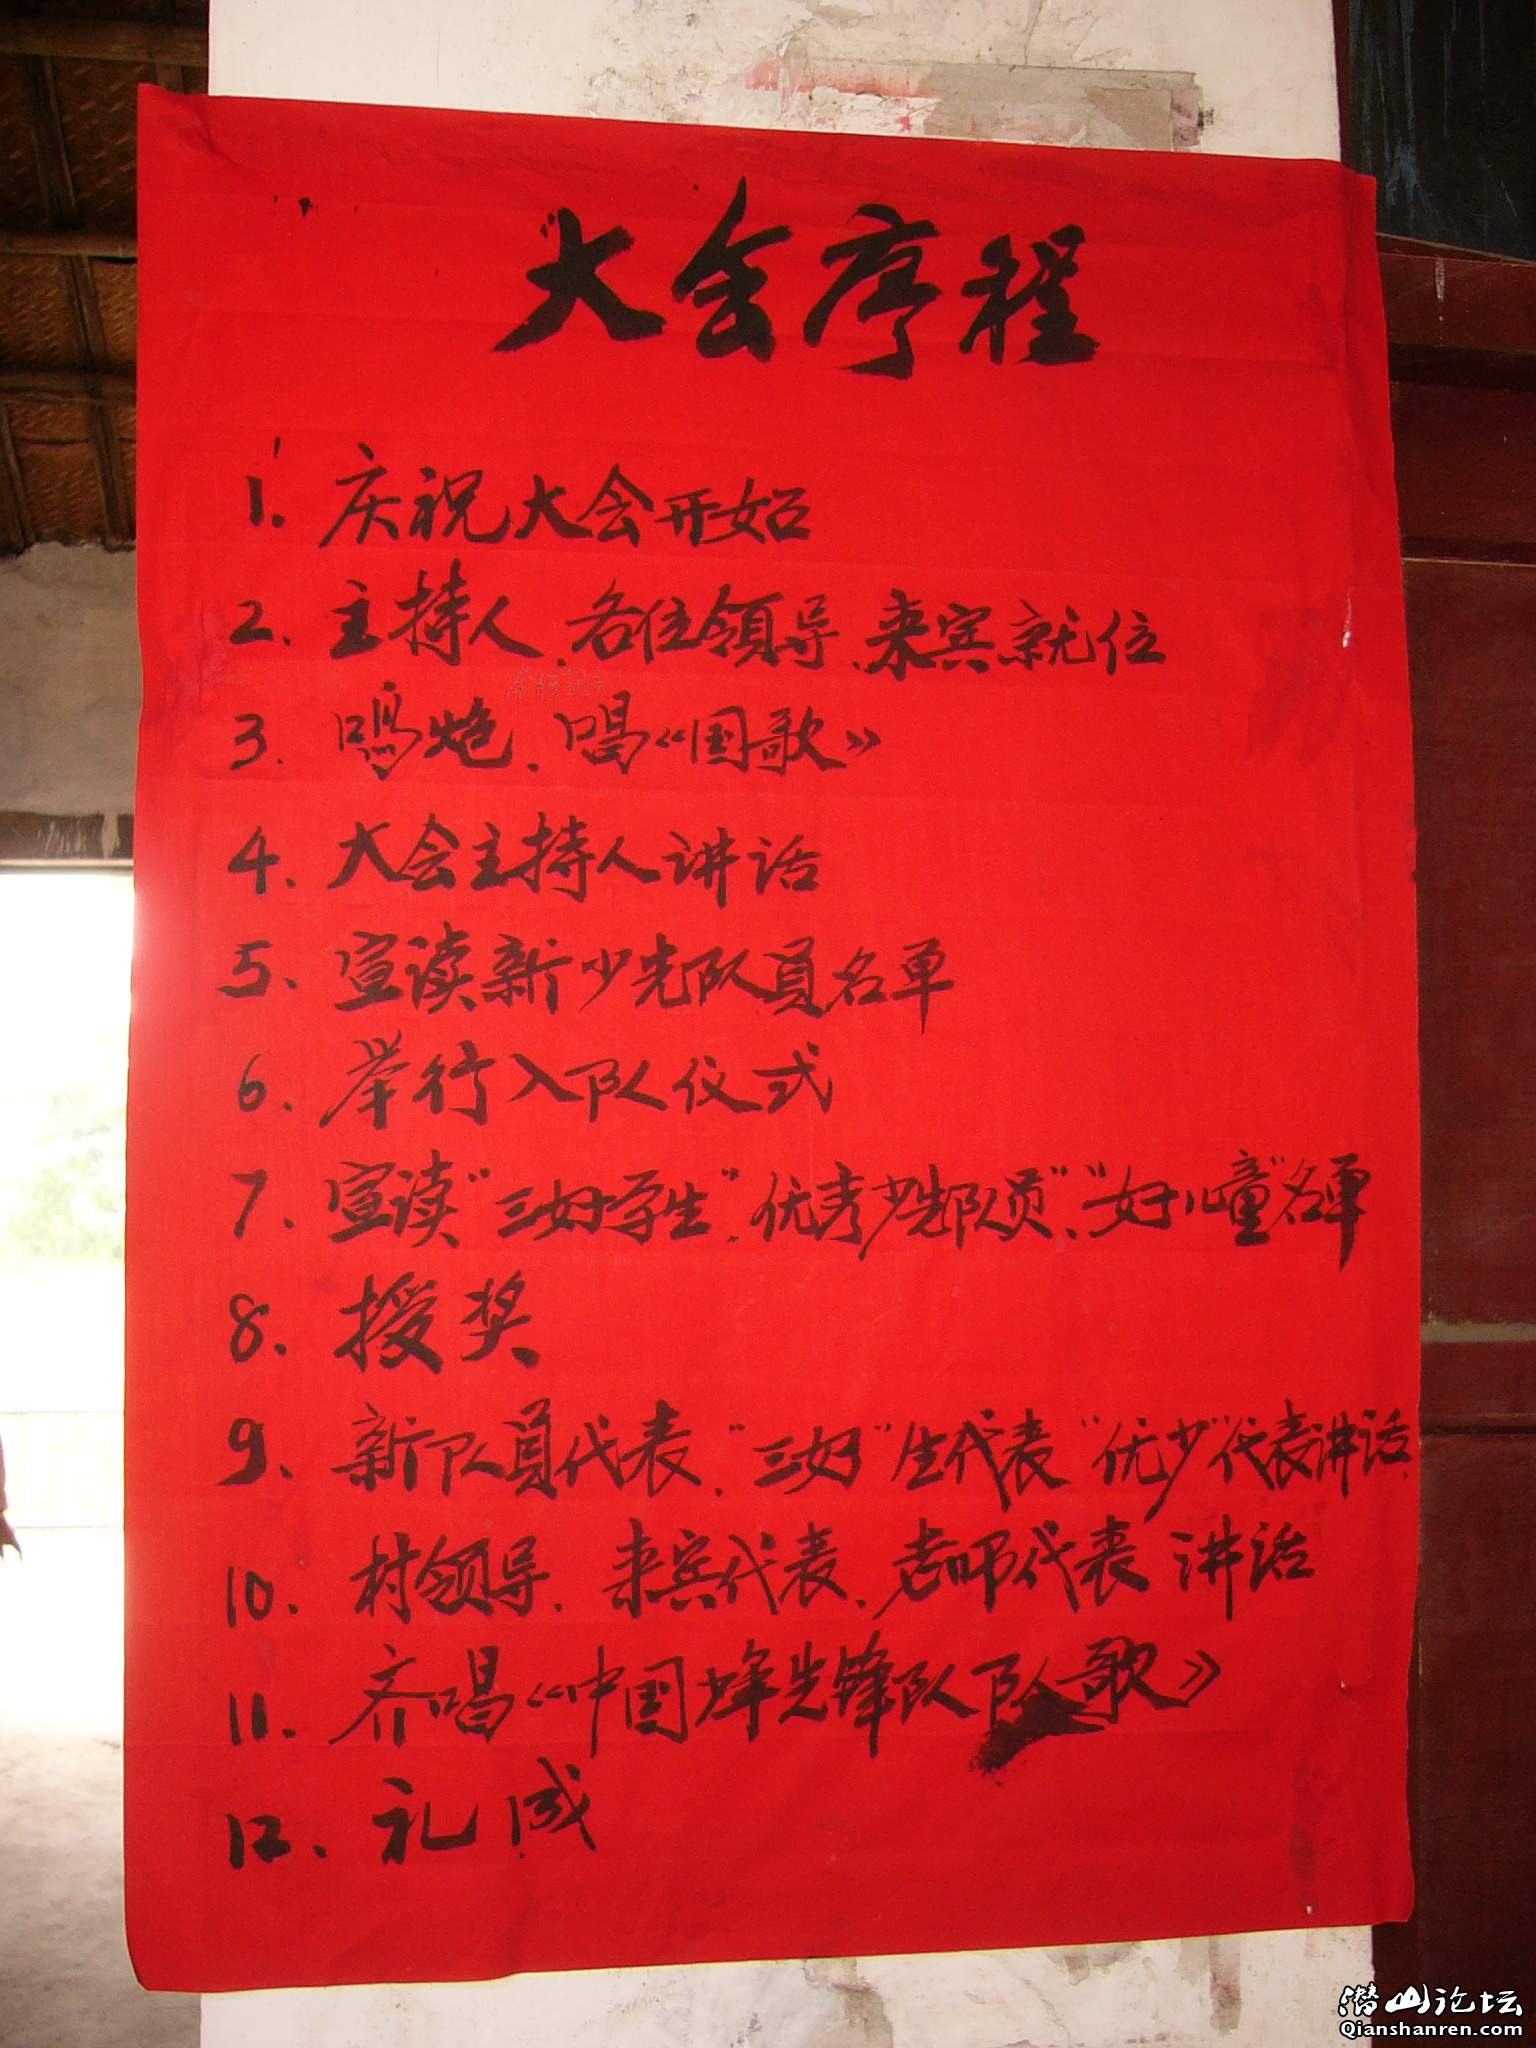 大会序程
1. 庆祝大会开始
2. 主持人、各位领导、来宾就位
3. 鸣炮、唱《国歌》
4. 大会主持人讲话
5. 宣读新少先队员名单
6. 举行入队仪式
7. 宣读"三好学生"、优秀少先队员"、"好儿童"名单
8. 授奖
9. 新队员代表、"三好"生代表"优少"代表讲话
10. 村领导、来宾代表、老师代表 讲话
11. 齐唱《中国少年先锋队队歌》
12. 礼成
潜山论坛
Qianshanren.com